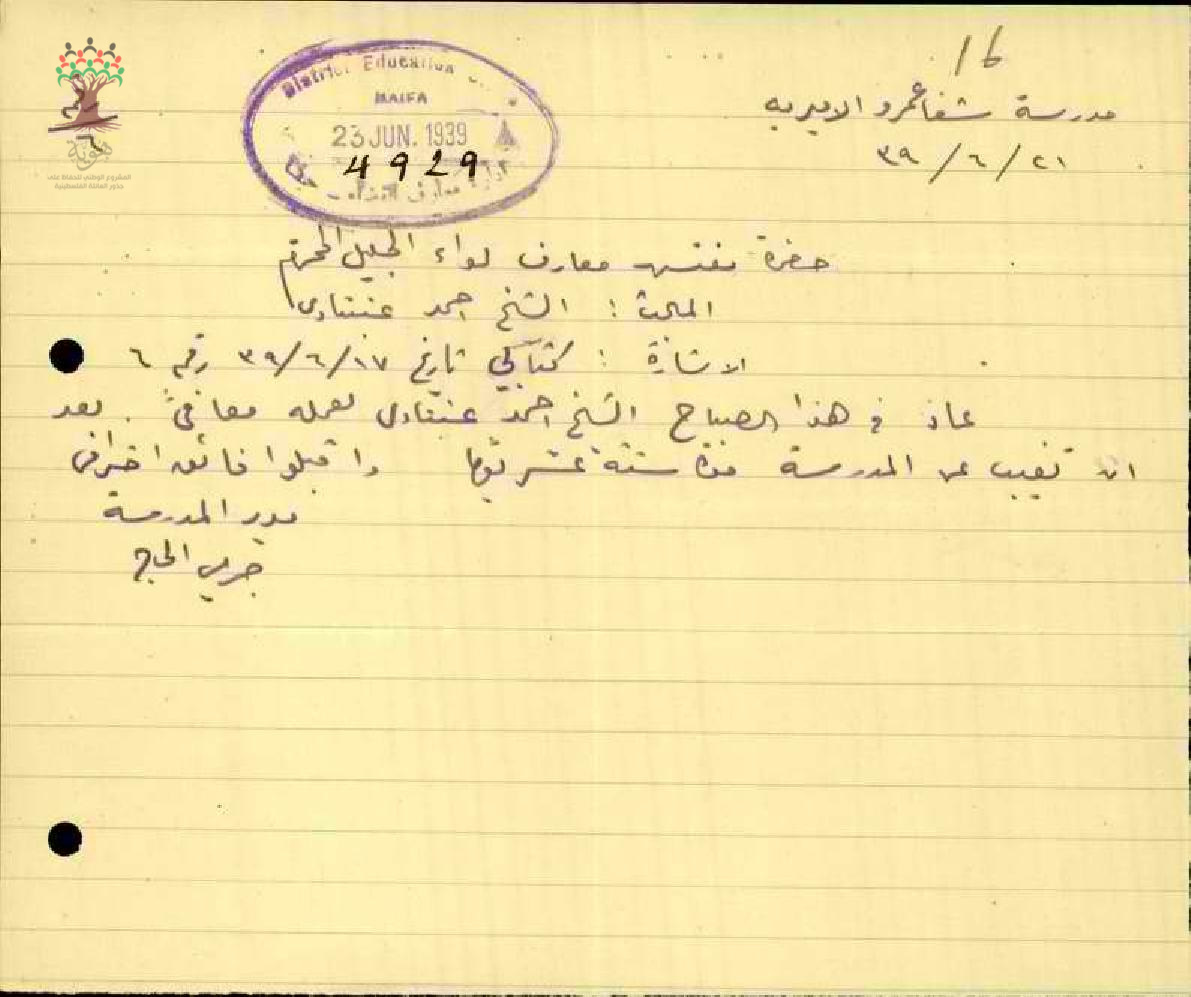 16
مدرسة شفاعمرو الاميريه
٢١ / ٦ / ٣٩
District Education
HAIFA
23 JUN. 1939
4929
هوية
المشروع الوطني للحفاظ على
جذور العائلة الفلسطينية
حضرة مفتش معارف لواء الجليل المحترم
الشيخ احمد عنبتاوي
الاشارة : كتابي تاريخ ١٧/٦/٣٩ رقم ٦
عاد في هذا الصباح الشيخ احمد عنبتاوي لعمله معافىً . بعد
ان تغيب عن المدرسة مدة ستة عشر يوما واقبلوا فائق احترامي
مدير المدرسة
الحاج